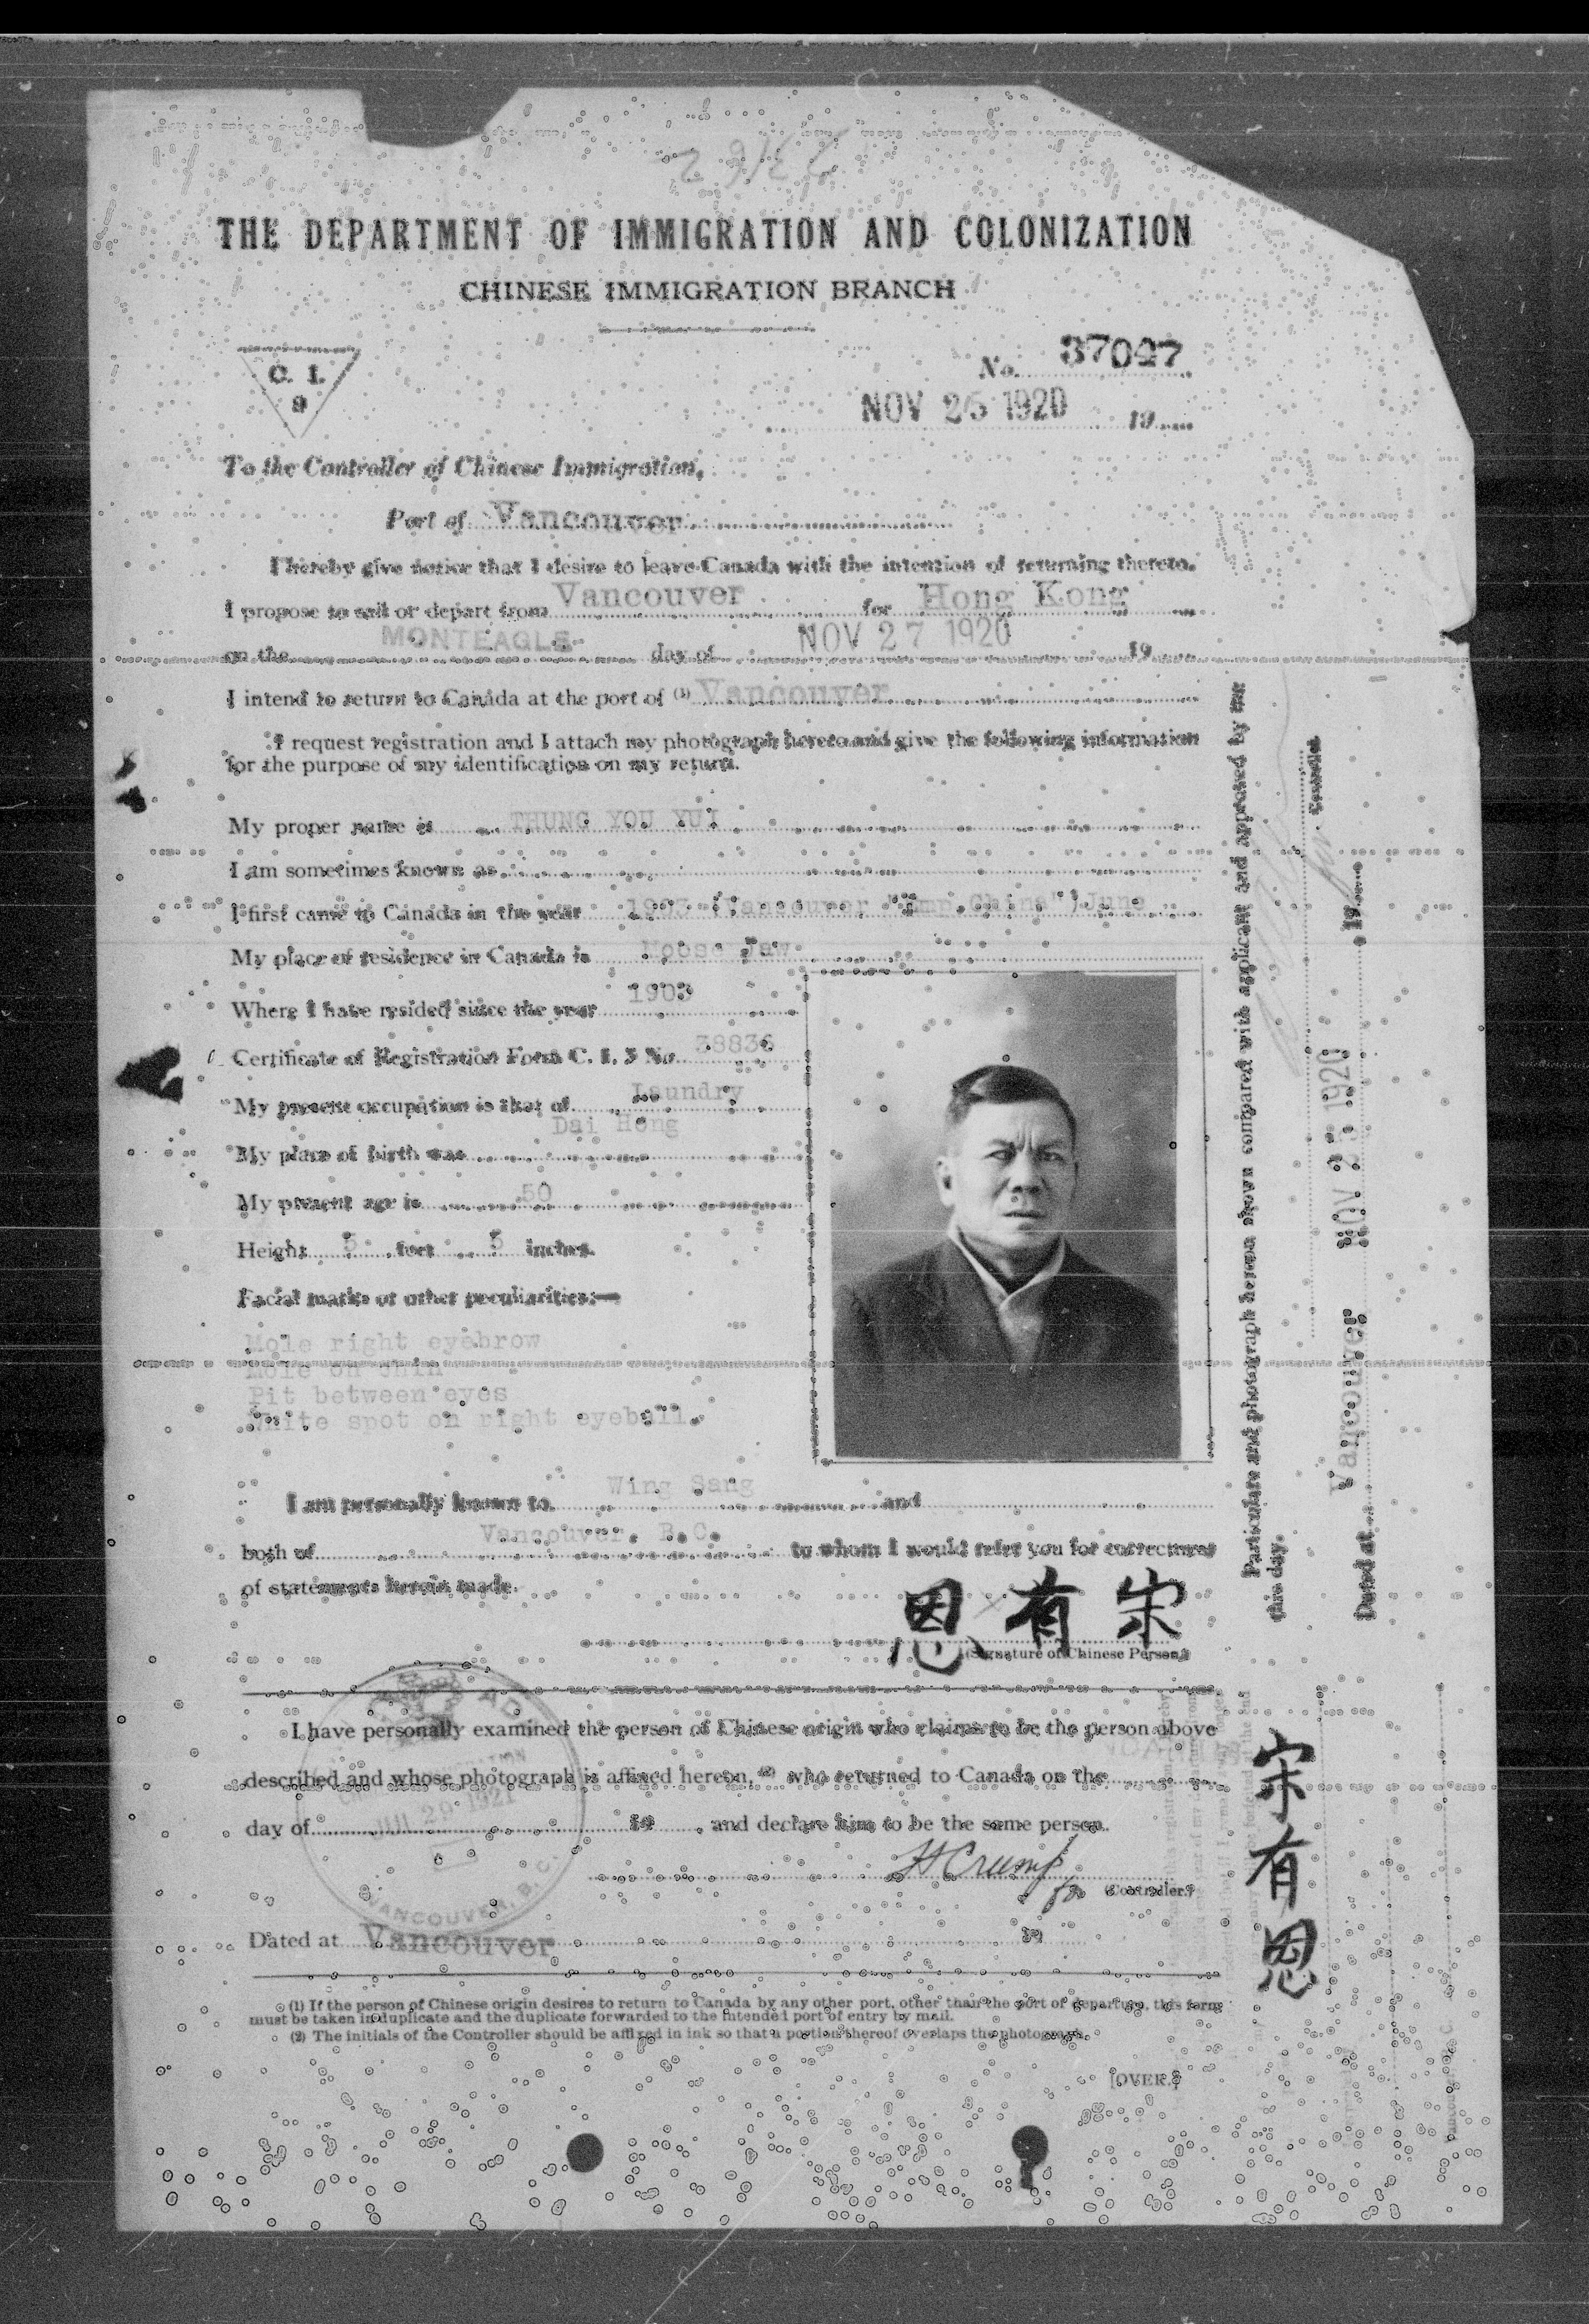 THE DEPARTMENT OF IMMIGRATION AND COLONIZATION
CHINESE IMMIGRATION BRANCH
C. I.
9
No. 37047
NOV 25 1920 19
To the Controller of Chinese Immigration,
Port of Vancouver
I hereby give notice that I desire to leave Canada with the intention of returning thereto.
I propose to sail or depart from Vancouver for Hong Kong
on the MONTEAGLE day of NOV 27 1920 19
I intend to return to Canada at the port of (1) Vancouver
I request registration and I attach my photograph hereto and give the following information
for the purpose of my identification on my return.
My proper name is THUNG YOU YUI
I am sometimes known as
I first came to Canada in the year 1903 (Vancouver "Emp. China") June
My place of residence in Canada is Moose Jaw
Where I have resided since the year 1903
Certificate of Registration Form C. I. 5 No. 38836
My present occupation is that of Laundry
My place of birth was Dai Hong
My present age is 50
Height 5 feet 5 inches.
Facial marks or other peculiarities:—
Mole right eyebrow
Mole on chin
Pit between eyes
White spot on right eyeball.
I am personally known to Wing Sang and
both of Vancouver, B.C. to whom I would refer you for correctness
of statements herein made.
恩有宋
(Signature of Chinese Person.)
I have personally examined the person of Chinese origin who claims to be the person above
described and whose photograph is affixed hereon, (2) who returned to Canada on the
day of 19 , and declare him to be the same person.
H Crump
for (Controller.)
29 1921
VANCOUVER, B. C.
Dated at Vancouver 19
(1) If the person of Chinese origin desires to return to Canada by any other port, other than the port of departure, this form
must be taken in duplicate and the duplicate forwarded to the intended port of entry by mail.
(2) The initials of the Controller should be affixed in ink so that a portion thereof overlaps the photograph.
[OVER.]
Particulars and photograph hereon shown compared with applicant and approved by me
this day.
Controller.
Dated at Vancouver NOV 25 1920 19
宋有恩